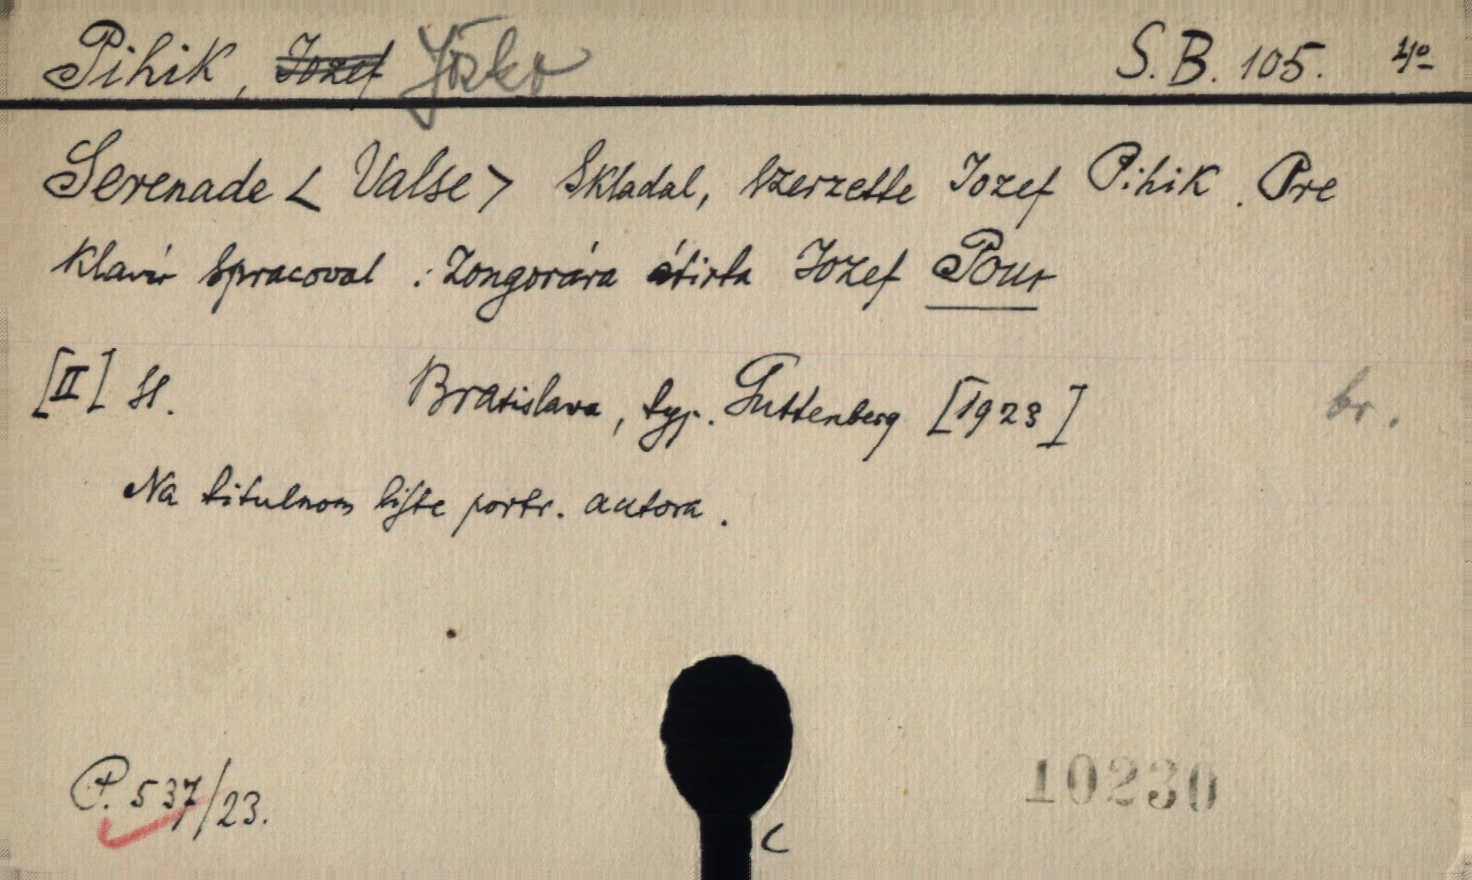 Pihik, Jozef Jožko S.B. 105. 4º
Serenade < Valse > Skladal, Szerzette Jozef Pihik. Pre
klavír spracoval : Zongorára átirta Jozef Pour
[II] st. Bratislava, typ. Guttenberg [1923] br.
Na titulnom liste portr. autora.
P. 537/23. 10230
C